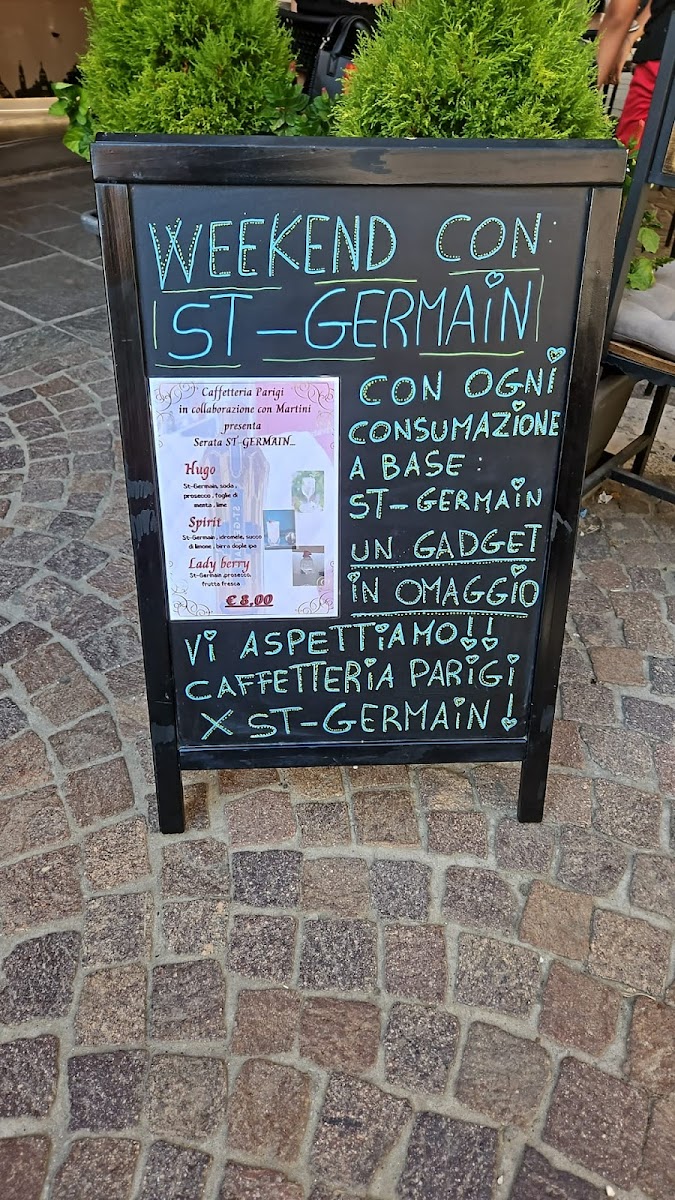 WEEKEND CON:
ST-GERMAIN
Caffetteria Parigi
in collaborazione con Martini
presenta
Serata ST-GERMAIN...
Hugo
St-Germain, soda,
prosecco, foglie di
menta, lime
Spirit
St-Germain, idromele, succo
di limone, birra dople ipa
Lady berry
St-Germain, prosecco,
frutta fresca
€ 8,00
CON OGNI
CONSUMAZIONE
A BASE:
ST-GERMAIN
UN GADGET
IN OMAGGIO
VI ASPETTIAMO!!
CAFFETTERIA PARIGI
X ST-GERMAIN!